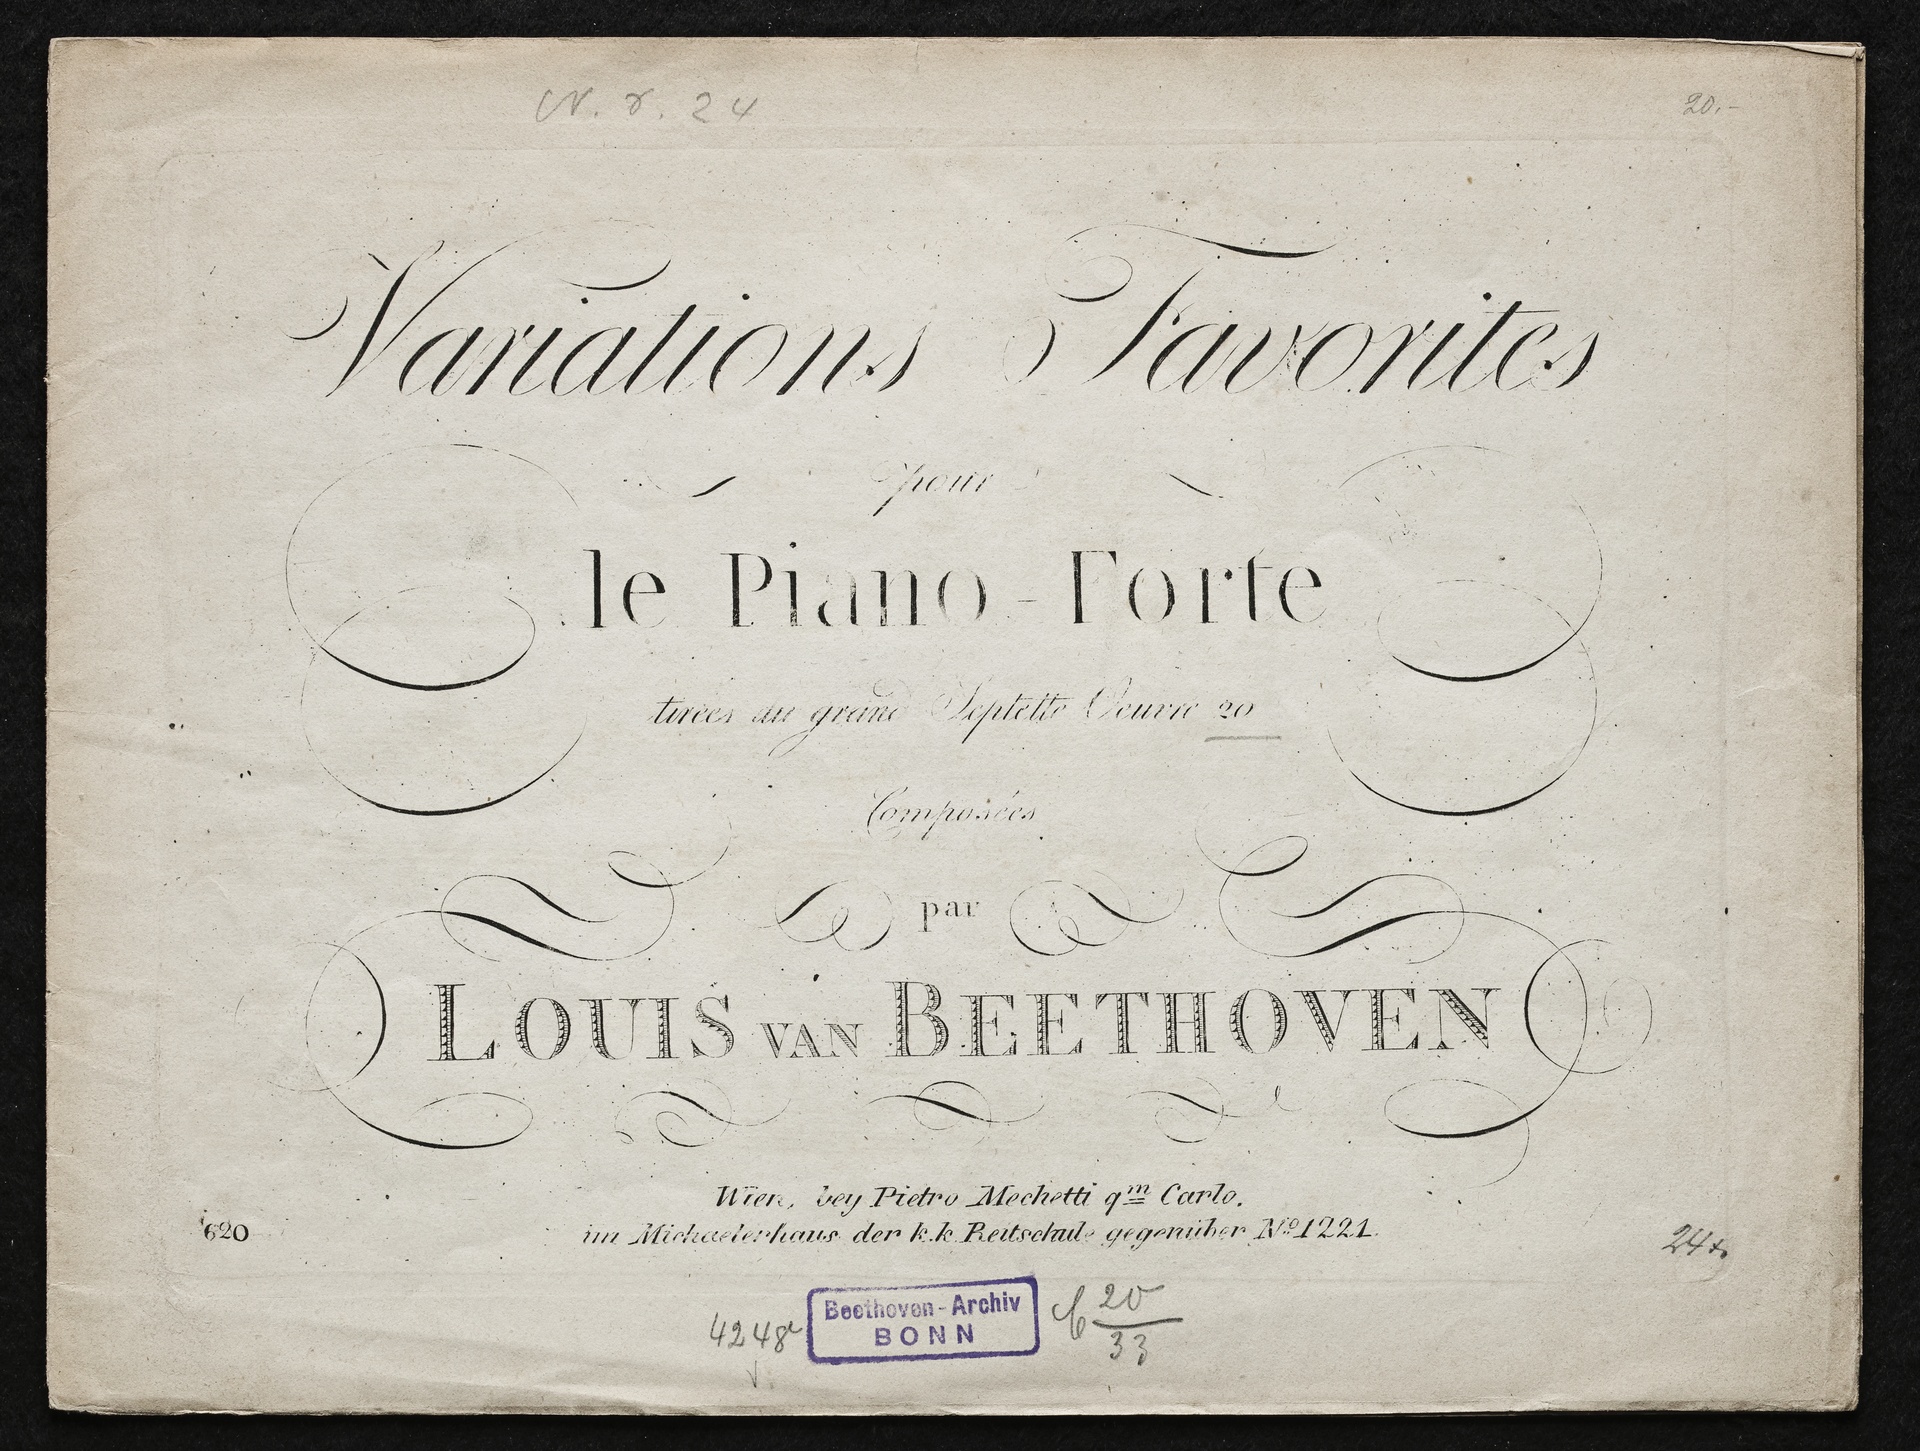 N. r. 24
20.-
Variations Favorites
pour
le Piano-Forte
tirées du grand Septette Oeuvre 20
Composées
par
LOUIS VAN BEETHOVEN
Wien, bey Pietro Mechetti qm Carlo.
im Michaelerhaus der k.k. Reitschule gegenüber No 1221.
620
24x.
Beethoven-Archiv
BONN
4248
C 20
33